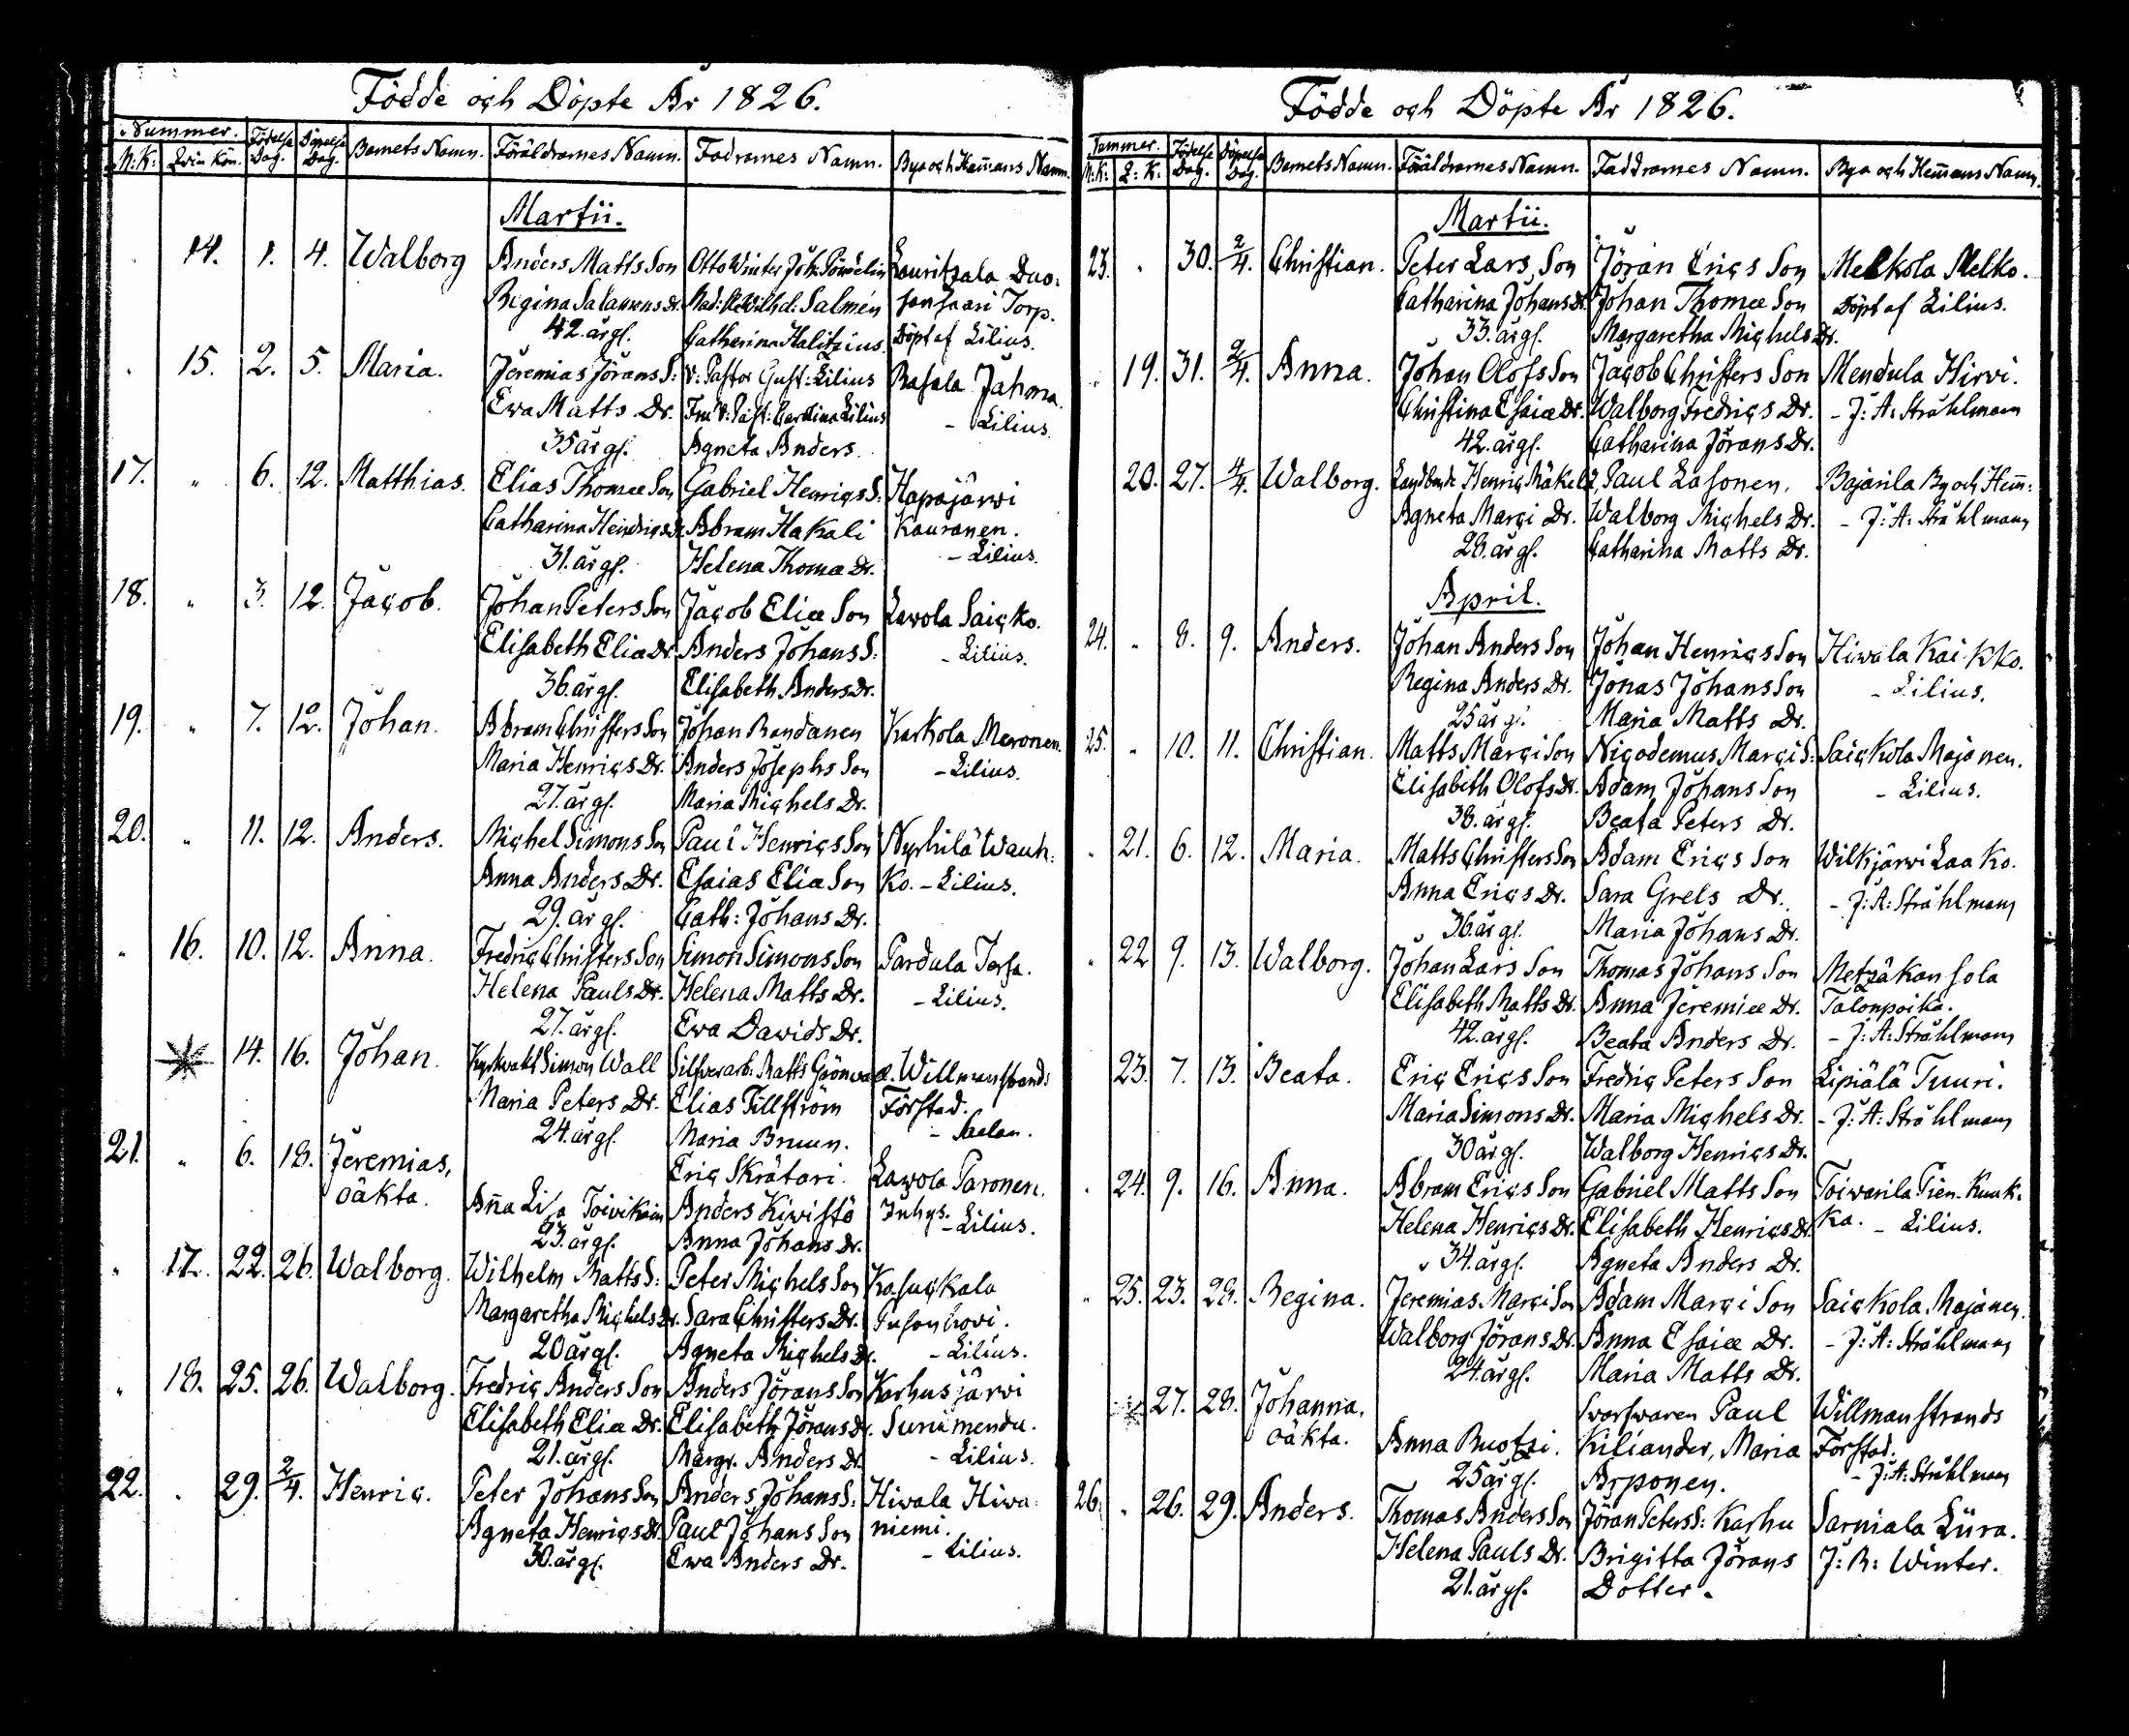 Födde och Döpte År 1826.
Nummer. Födelse Dag. Döpelse Dag. Barnets Namn. Föräldrarnes Namn. Fadrarnes Namn. Bya och Hem̄ans Namn.
M: K: Qvin Kön.
Martii.
14. 1. 4. Walborg Anders Matts Son Otto Winter Joh: Lauritzala
Regina Salamons Dr. Salmén Torp.
42. årgl. Catharina Döpt af Lilius.
15. 2. 5. Maria. Jeremias Jörans S: V: Pastor Gust: Lilius Rasala Jahma.
Ewa Matts Dr. Fru V: Past: Carolina Lilius – Lilius.
35 årgl. Agneta Anders
17. " 6. 12. Matthias. Elias Thomæ Son Gabriel Henrics S: Hapajärwi
Catharina Heindrics Dr. Abram Hakali Kauranen.
31. årgl. Helena Thomæ Dr. – Lilius.
18. " 3. 12. Jacob. Johan Peters Son Jacob Eliæ Son Lawola Saicko.
Elisabeth Eliæ Dr. Anders Johans S: – Lilius.
36. årgl. Elisabeth Anders Dr.
19. " 7. 12. Johan. Abram Christers Son Johan Randanen Karkola Meronen.
Maria Henrics Dr. Anders Josephs Son – Lilius.
27. årgl. Maria Michels Dr.
20. " 11. 12. Anders. Michel Simons Son Paul Henrics Son Nyrhilä Wauh:
Anna Anders Dr. Esaias Eliæ Son Ko. – Lilius.
29. årgl. Cath: Johans Dr.
" 16. 10. 12. Anna. Fredric Christers Son Simon Simons Son Pardula Torsa.
Helena Pauls Dr. Helena Matts Dr. – Lilius.
27. årgl. Ewa Dawids Dr.
14. 16. Johan. Kyrkvakt Simon Wall Silfverarb: Matts Grönwa d. Willmanstrands
Maria Peters Dr. Elias Tillström Förstad.
24. årgl. Maria Bruun.
21. " 6. 18. Jeremias, Eric Skrätari. Lawola Paronen.
oäkta. Aña Lisa Toivikain Anders Kiwistö Inhys. – Lilius.
23. årgl. Anna Johans Dr.
" 17. 22. 26. Walborg. Wilhelm Matts S: Peter Michels Son Kasuckala
Margaretha Michels Dr. Sara Christers Dr.
20 årgl. Agneta Michels Dr. – Lilius.
" 18. 25. 26. Walborg. Fredric Anders Son Anders Jörans Son Karhusjärwi
Elisabeth Eliæ Dr. Elisabeth Jörans Dr. Surimendu.
21. årgl. Margr. Anders Dr. – Lilius.
22. . 29. 2/4. Henric. Peter Johans Son Anders Johans S: Hiwala Hiwa:
Agneta Henrics Dr. Paul Johans Son niemi.
30. årgl. Ewa Anders Dr. – Lilius.
Födde och Döpte År 1826.
Nummer. Födelse Dag. Döpelse Dag. Barnets Namn. Föräldrarnes Namn. Faddrarnes Namn. Bya och Hem̄ans Namn.
M: K: Q: K:
Martii.
23. " 30. 2/4. Christian. Peter Lars Son Jöran Erics Son Melkola Melko.
Catharina Johans Dr. Johan Thomæ Son Döpt af Lilius.
33. årgl. Margaretha Michels Dr.
" 19. 31. 2/4. Anna. Johan Olofs Son Jacob Christers Son Mendula Hirvi.
Christina Esaiæ Dr. Walborg Fredrics Dr. – J: A: Stråhlmann
42. årgl. Catharina Jörans Dr.
20. 27. 4/4. Walborg. Landbonde Henric Mäkelä Paul Lasonen, Bajarila By och Hem̄:
Agneta Marci Dr. Walborg Michels Dr. – J: A: Stråhlmann
28. årgl. Catharina Matts Dr.
April.
24. " 8. 9. Anders. Johan Anders Son Johan Henrics Son Hiwala Kaikko.
Regina Anders Dr. Jonas Johans Son – Lilius.
25 årgl. Maria Matts Dr.
25. " 10. 11. Christian. Matts Marci Son Nicodemus Marci S: Saickola Majanen.
Elisabeth Olofs Dr. Adam Johans Son – Lilius.
38. årgl. Beata Peters Dr.
" 21. 6. 12. Maria. Matts Christers Son Adam Erics Son Wilkjärwi Laako.
Anna Erics Dr. Sara Grels Dr. – J: A: Stråhlmann
36. årgl. Maria Johans Dr.
" 22 9. 13. Walborg. Johan Lars Son Thomas Johans Son Metzäkansola
Elisabeth Matts Dr. Anna Jeremiæ Dr. Talonpoika.
42. årgl. Beata Anders Dr. – J: A: Stråhlmann
23. 7. 13. Beata. Eric Erics Son Fredric Peters Son Lipiälä Tuuri.
Maria Simons Dr. Maria Michels Dr. – J: A: Stråhlmann
30 årgl. Walborg Henrics Dr.
" 24. 9. 16. Anna. Abram Erics Son Gabriel Matts Son Toiwarila Pien-Kuuk:
Helena Henrics Dr. Elisabeth Henrics Dr. Ka. – Lilius.
34. årgl. Agneta Anders Dr.
" 25. 23. 28. Regina. Jeremias Marci Son Adam Marci Son Saickola Majanen.
Walborg Jörans Dr. Anna Esaiæ Dr. – J: A: Stråhlmann
24. årgl. Maria Matts Dr.
27. 28. Johanna. Svarfvaren Paul Willmanstrands
oäkta. Anna Ruotzi. Kiliander, Maria Förstad.
25 årgl. Arponen. – J: A: Stråhlmann
26. " 26. 29. Anders. Thomas Anders Son Jöran Peters S: Karhu Sarniala Lüra.
Helena Pauls Dr. Brigitta Jörans J: R: Winter.
21. årgl. Dotter.